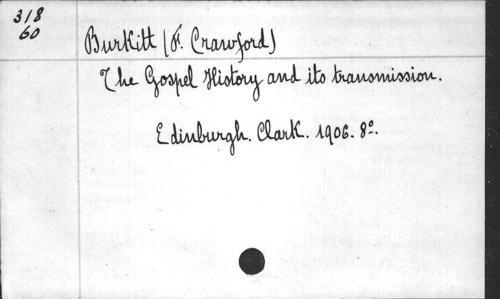 318
60
Burkitt (F. Crawford)
The Gospel History and its transmission.
Edinburgh. Clark. 1906. 8º.